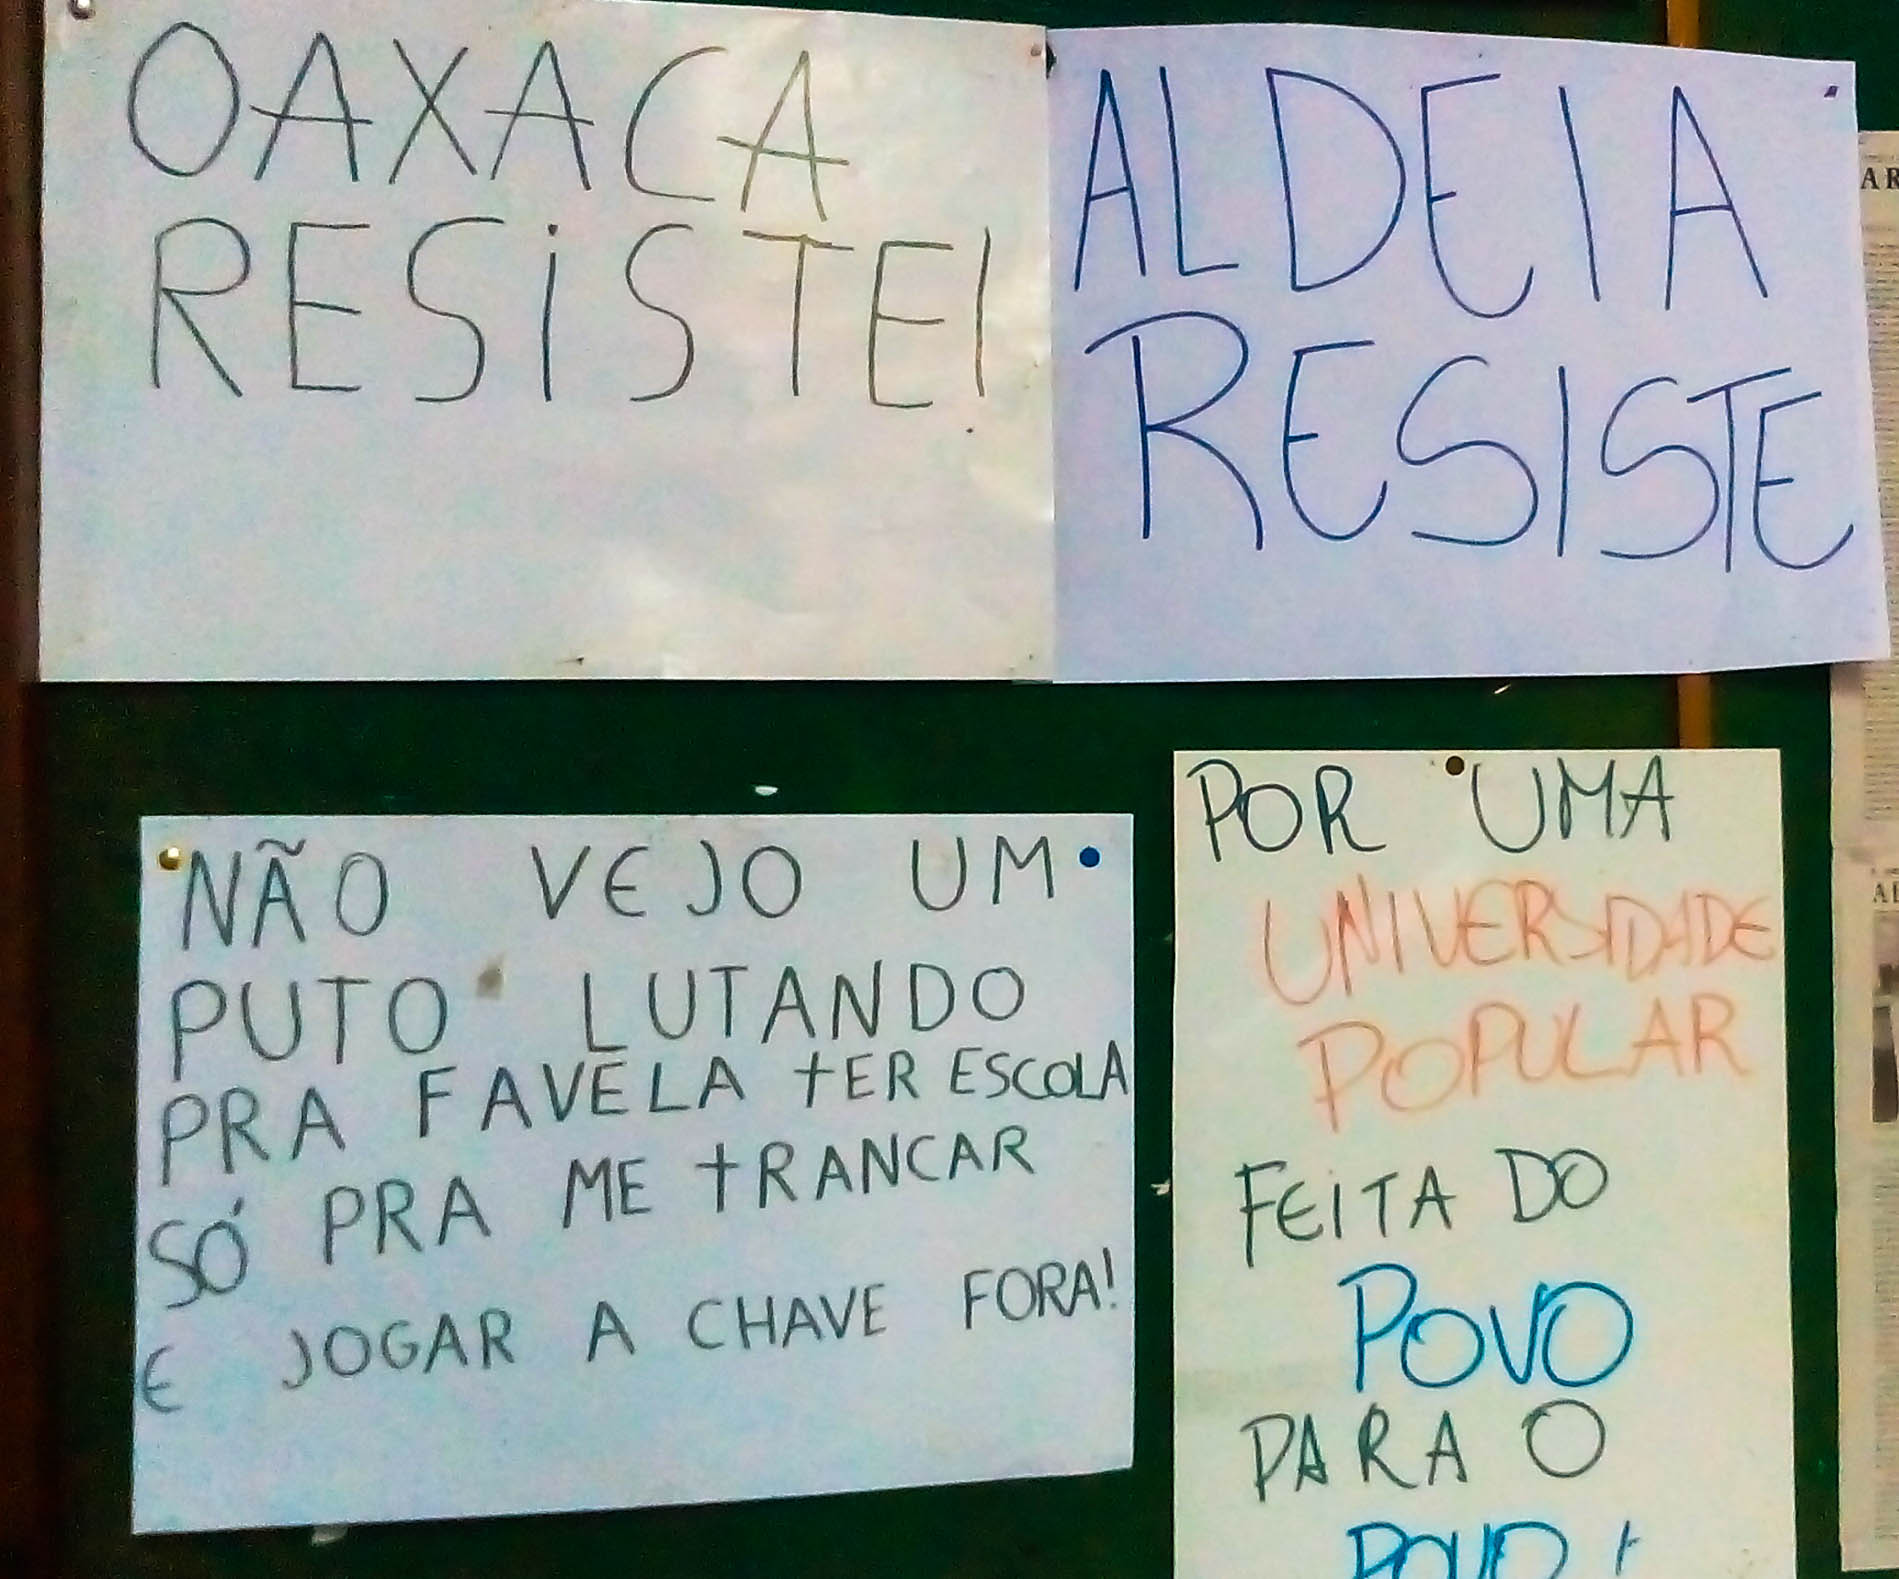 OAXACA
RESiSTE!
ALDEIA
RESISTE
NÃO VEJO UM
PUTO LUTANDO
PRA FAVELA tER ESCOLA
SÓ PRA ME tRANCAR
E JOGAR A CHAVE FORA!
POR UMA
UNIVERSIDADE
POPULAR
FEiTA DO
POVO
PARA O
POVO!
AR
AL